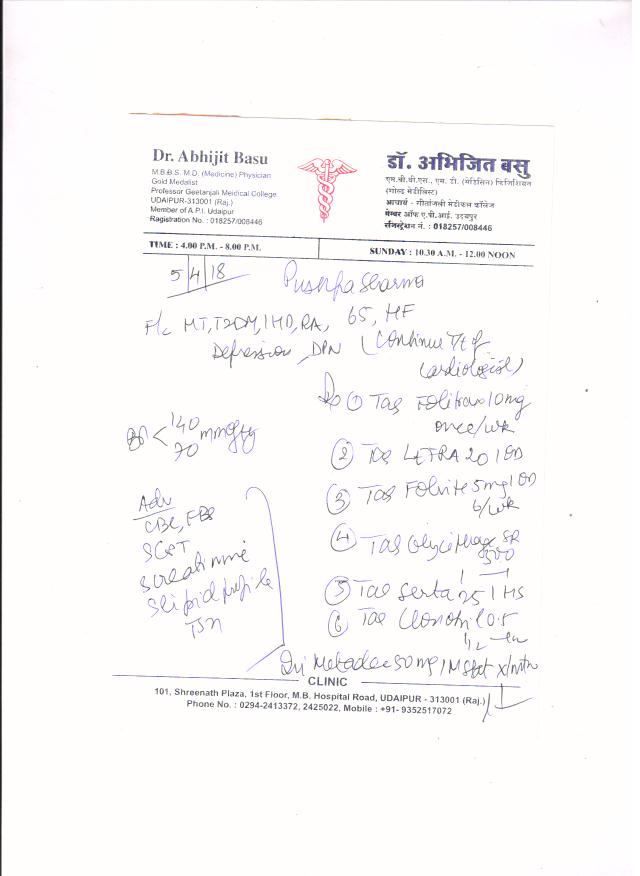 Dr. Abhijit Basu
M.B.B.S. M.D. (Medicine) Physician
Gold Medalist
Professor Geetanjali Meidical College
UDAIPUR-313001 (Raj.)
Member of A.P.I. Udaipur
Ragistration No. : 018257/008446
डॉ. अभिजित बसु
एम.बी.बी.एस., एम. डी. (मेडिसिन) फिजिशियन
(गोल्ड मेडीलिस्ट)
आचार्य - गीतांजली मेडीकल कॉलेज
मेम्बर ऑफ ए.पी.आई. उदयपुर
रजिस्ट्रेशन नं. : 018257/008446
TIME : 4.00 P.M. - 8.00 P.M.
SUNDAY : 10.30 A.M. - 12.00 NOON
5/4/18
Pushpa Sharma
F/c HT, T2DM, IHD, RA, 65, HF
Depression, DPN (Continue T/t of
Cardiologist)
① Tab Folitrax 10mg
once/wk
BP < 140/70 mmHg
② Tab LETRA 20 1 OD
③ Tab Folvite 5mg 1 OD
6/wk
Adv
CBC, FBS
SGPT
S creatinine
S lipid profile
TSH
④ Tab Glyciphage SR
500
1 — 1
⑤ Tab Serta 25 1 HS
⑥ Tab Clonotril 0.5
1/2
Inj 50mg 1M stat x/mth
CLINIC
101, Shreenath Plaza, 1st Floor, M.B. Hospital Road, UDAIPUR - 313001 (Raj.)
Phone No. : 0294-2413372, 2425022, Mobile : +91- 9352517072